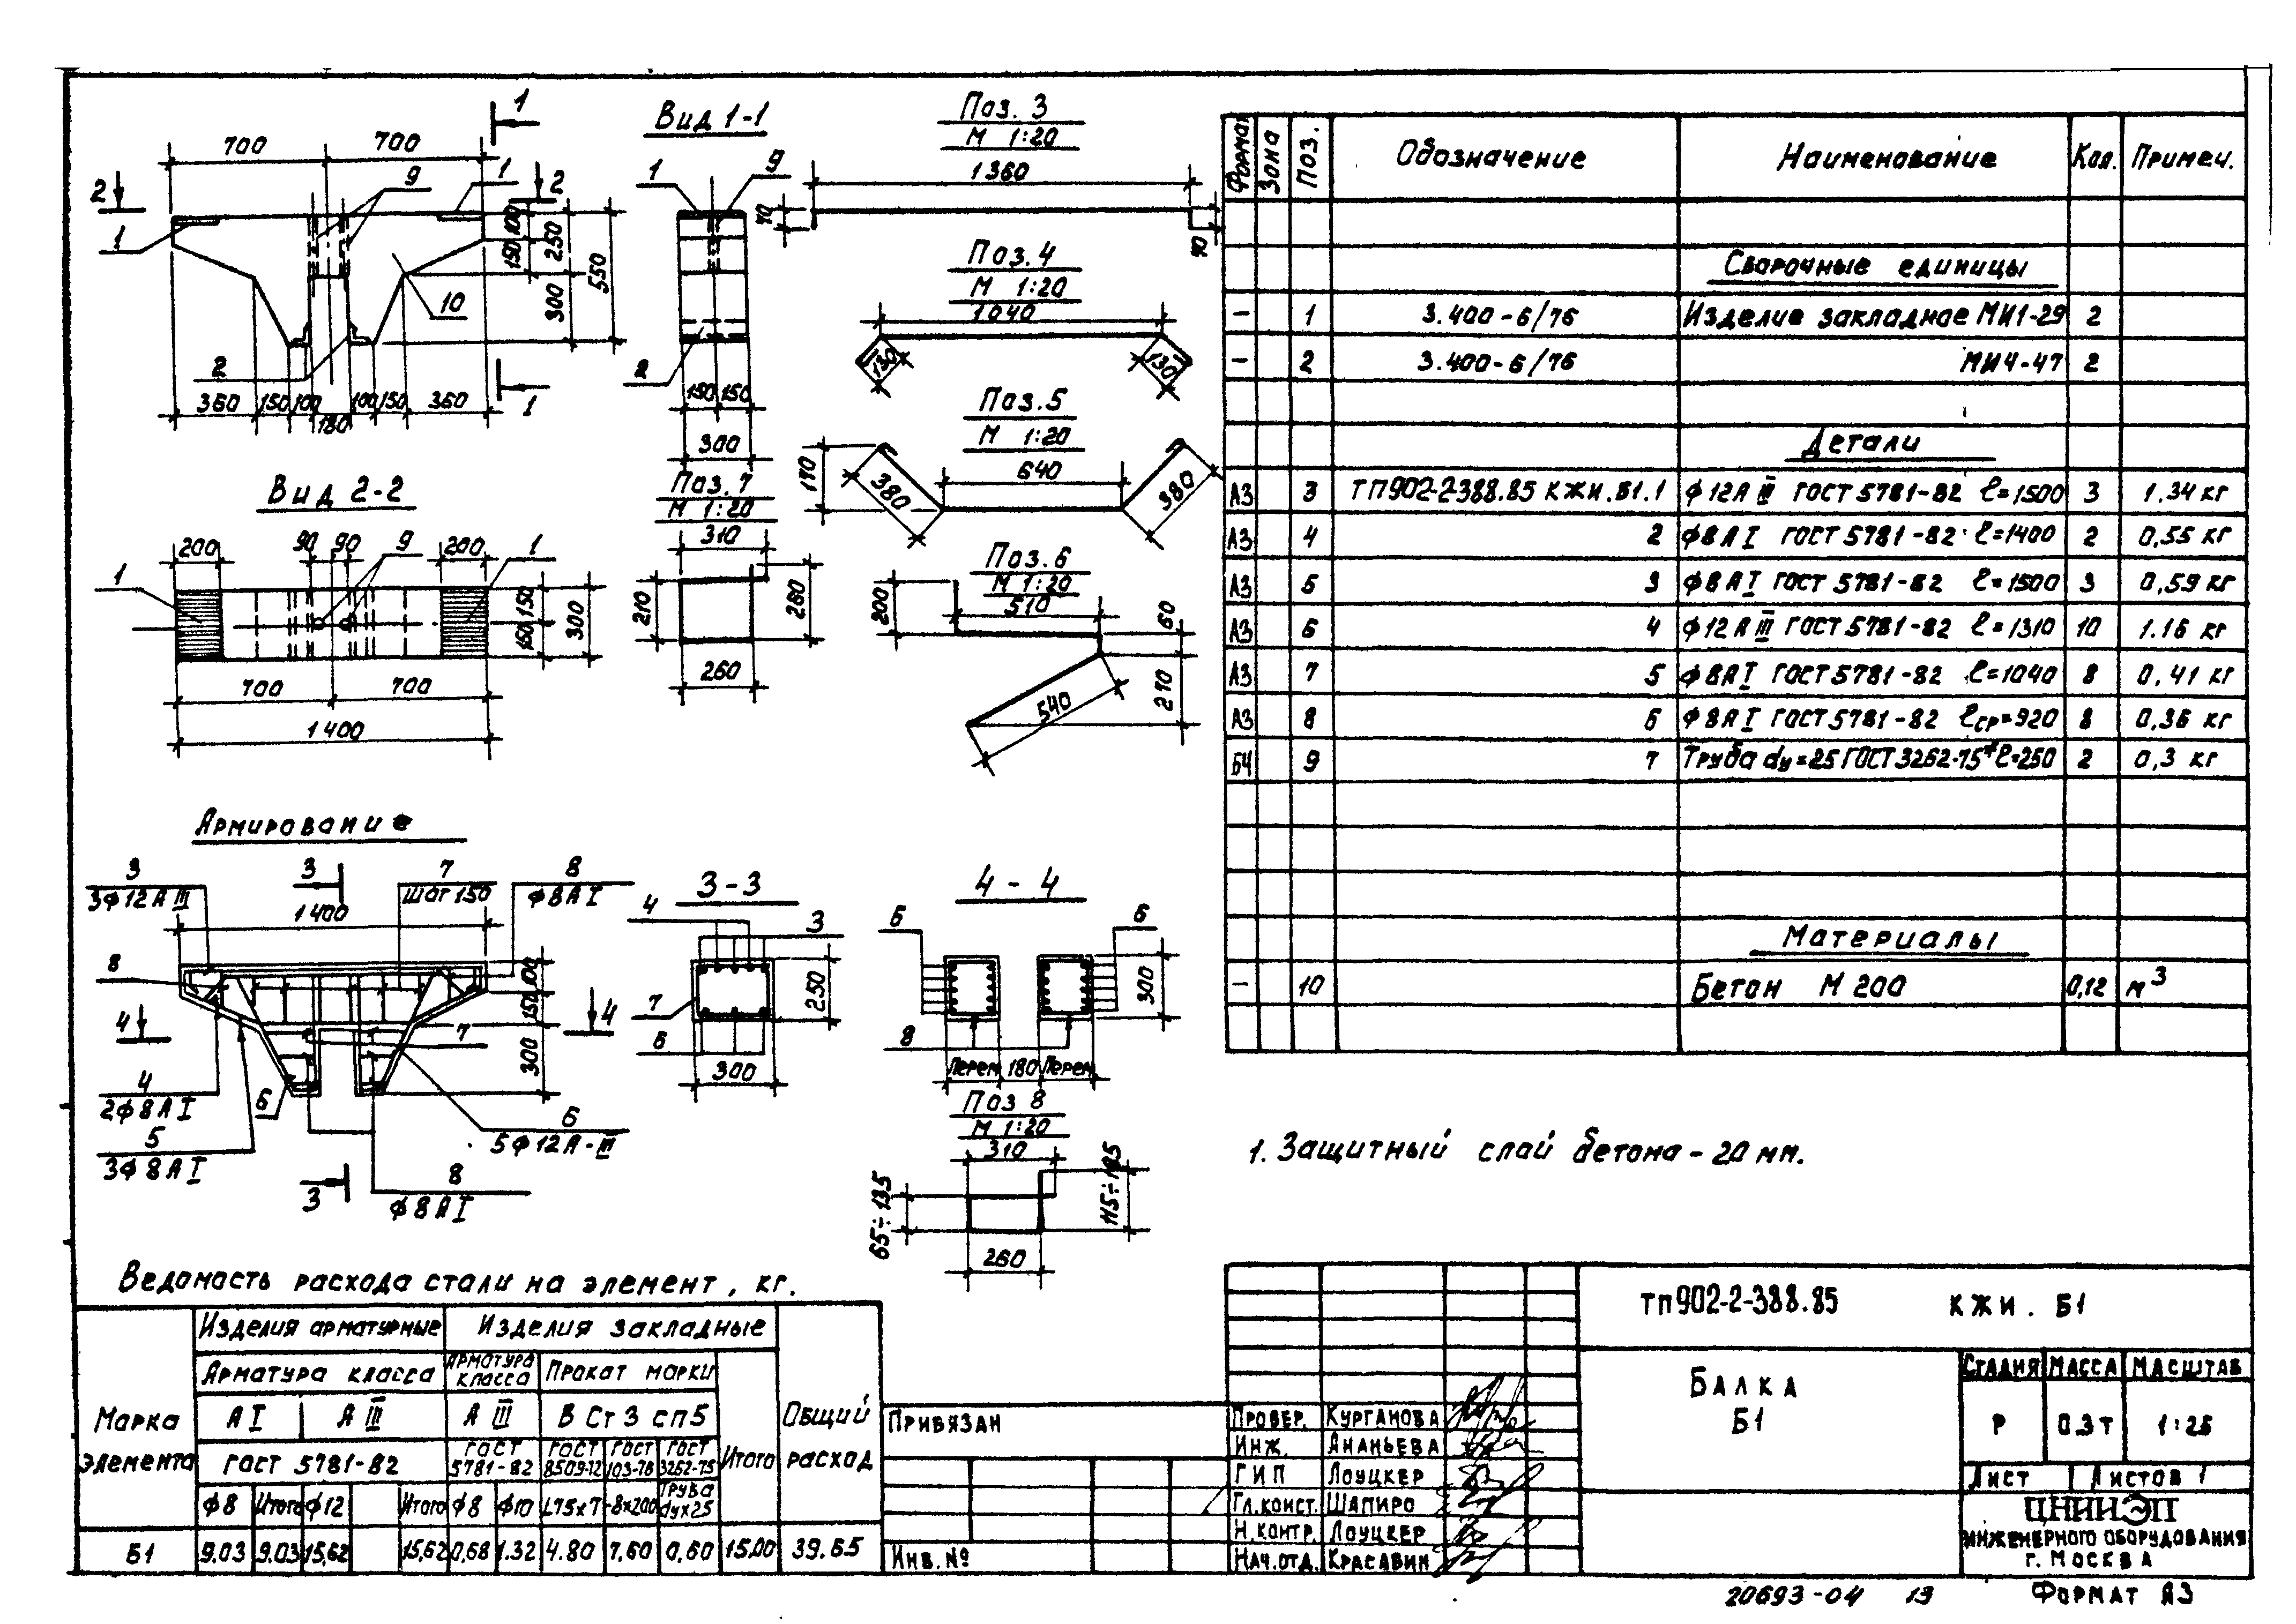 1
700 700
2 9 1 2
1
100
150
250
300
550
10
2
360 150 100 180 100 150 360
1
Вид 1-1
1 9
2
150 150
300
Поз. 3
М 1:20
1360
70
70
Поз. 4
М 1:20
1040
130 130
Поз. 5
М 1:20
640
170
380 380
Вид 2-2
200 90 90 9 200 1
1
150
150
300
700 700
1400
Поз. 7
М 1:20
310
210
260
260
Поз. 6
М 1:20
510
200
60
210
540
Армирование
3
3ф12АIII
3
7
шаг 150
8
ф8АI
1400
8
100
150
300
4 4
7
4
2ф8АI
5
3ф8АI
6
6
5ф12А-III
3
8
ф8АI
3-3
4
3
7
6
250
300
4-4
6 6
8
300
Перем 180 Перем
Поз 8
М 1:20
310
65÷135
115÷185
260
Формат Зона Поз. Обозначение Наименование Кол. Примеч.
Сборочные единицы
– 1 3.400-6/76 Изделие закладное МИ1-29 2
– 2 3.400-6/76 МИ4-47 2
Детали
А3 3 ТП902-2-388.85 КЖИ.Б1.1 ф12АIII ГОСТ 5781-82 ℓ=1500 3 1.34 кг
А3 4 2 ф8АI ГОСТ 5781-82 ℓ=1400 2 0,55 кг
А3 5 3 ф8АI ГОСТ 5781-82 ℓ=1500 3 0,59 кг
А3 6 4 ф12АIII ГОСТ 5781-82 ℓ=1310 10 1.16 кг
А3 7 5 ф8АI ГОСТ 5781-82 ℓ=1040 8 0,41 кг
А3 8 6 ф8АI ГОСТ 5781-82 ℓср=920 8 0,36 кг
БЧ 9 7 Труба dу=25 ГОСТ 3262-75* ℓ=250 2 0,3 кг
Материалы
– 10 Бетон М 200 0,12 м³
1. Защитный слой бетона - 20 мм.
Ведомость расхода стали на элемент, кг.
Марка элемента
Изделия арматурные Изделия закладные
Арматура класса Арматура класса Прокат марки
АI АIII АIII ВСт3сп5
Итого
Общий расход
ГОСТ 5781-82 ГОСТ 5781-82 ГОСТ 8509-72 ГОСТ 103-76 ГОСТ 3262-75
ф8 Итого ф12 Итого ф8 ф10 L75х7 -8х200 Труба dух25
Б1 9.03 9.03 15,62 15,62 0,68 1.32 4.80 7.60 0,60 15.00 39.65
Привязан
Инв. №
Провер. Курганова
Инж. Ананьева
ГИП Лоуцкер
Гл.конст. Шапиро
Н.контр. Лоуцкер
Нач.отд. Красавин
ТП902-2-388.85 КЖИ. Б1
Балка
Б1
Стадия Масса Масштаб
Р 0.3т 1:25
Лист Листов 1
ЦНИИЭП
инженерного оборудования
г. Москва
20693-04 13 Формат А3